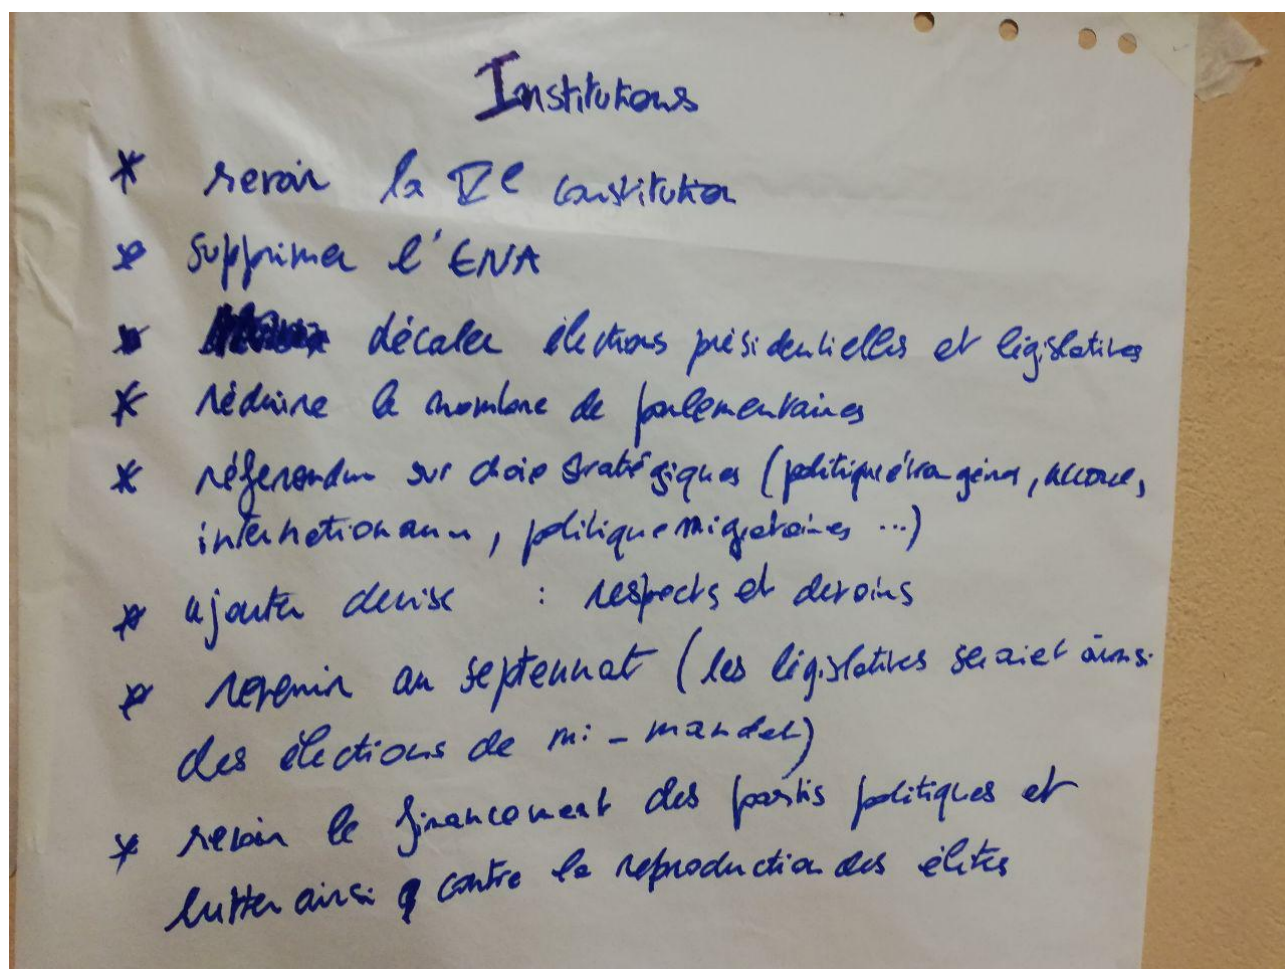 Institutions
* revoir la Ve constitution
* supprimer l'ENA
* décaler élections présidentielles et législatives
* réduire le nombre de parlementaires
* référendum sur choix stratégiques (politique étrangère, accords,
internationaux, politique migratoires ...)
* ajouter devise : respects et devoirs
* revenir au septennat (les législatives seraiet ainsi
des élections de mi-mandat)
* revoir le financement des partis politiques et
lutter ainsi contre la reproduction des élites